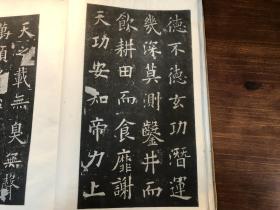 德不德玄功潛運
幾深莫測鑿井而
飲耕田而食靡謝
天功安知帝力上
天之載無臭無聲
萬類